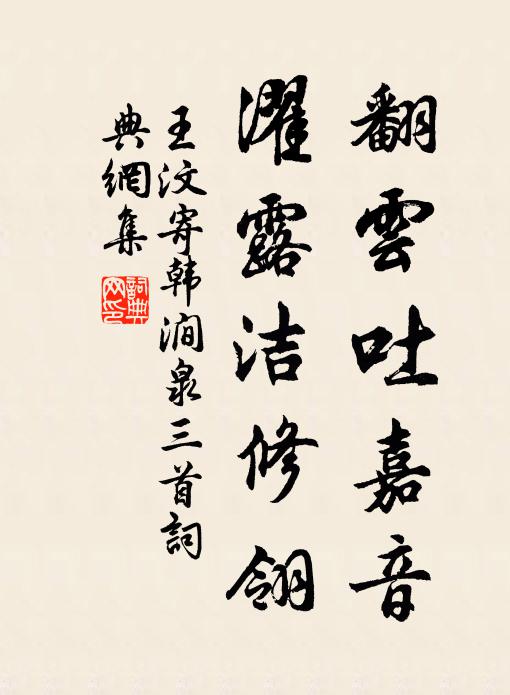 翻雲吐嘉音
濯露洁修翎
王汶寄韩澗泉三首詞
典網集
詞典
网印